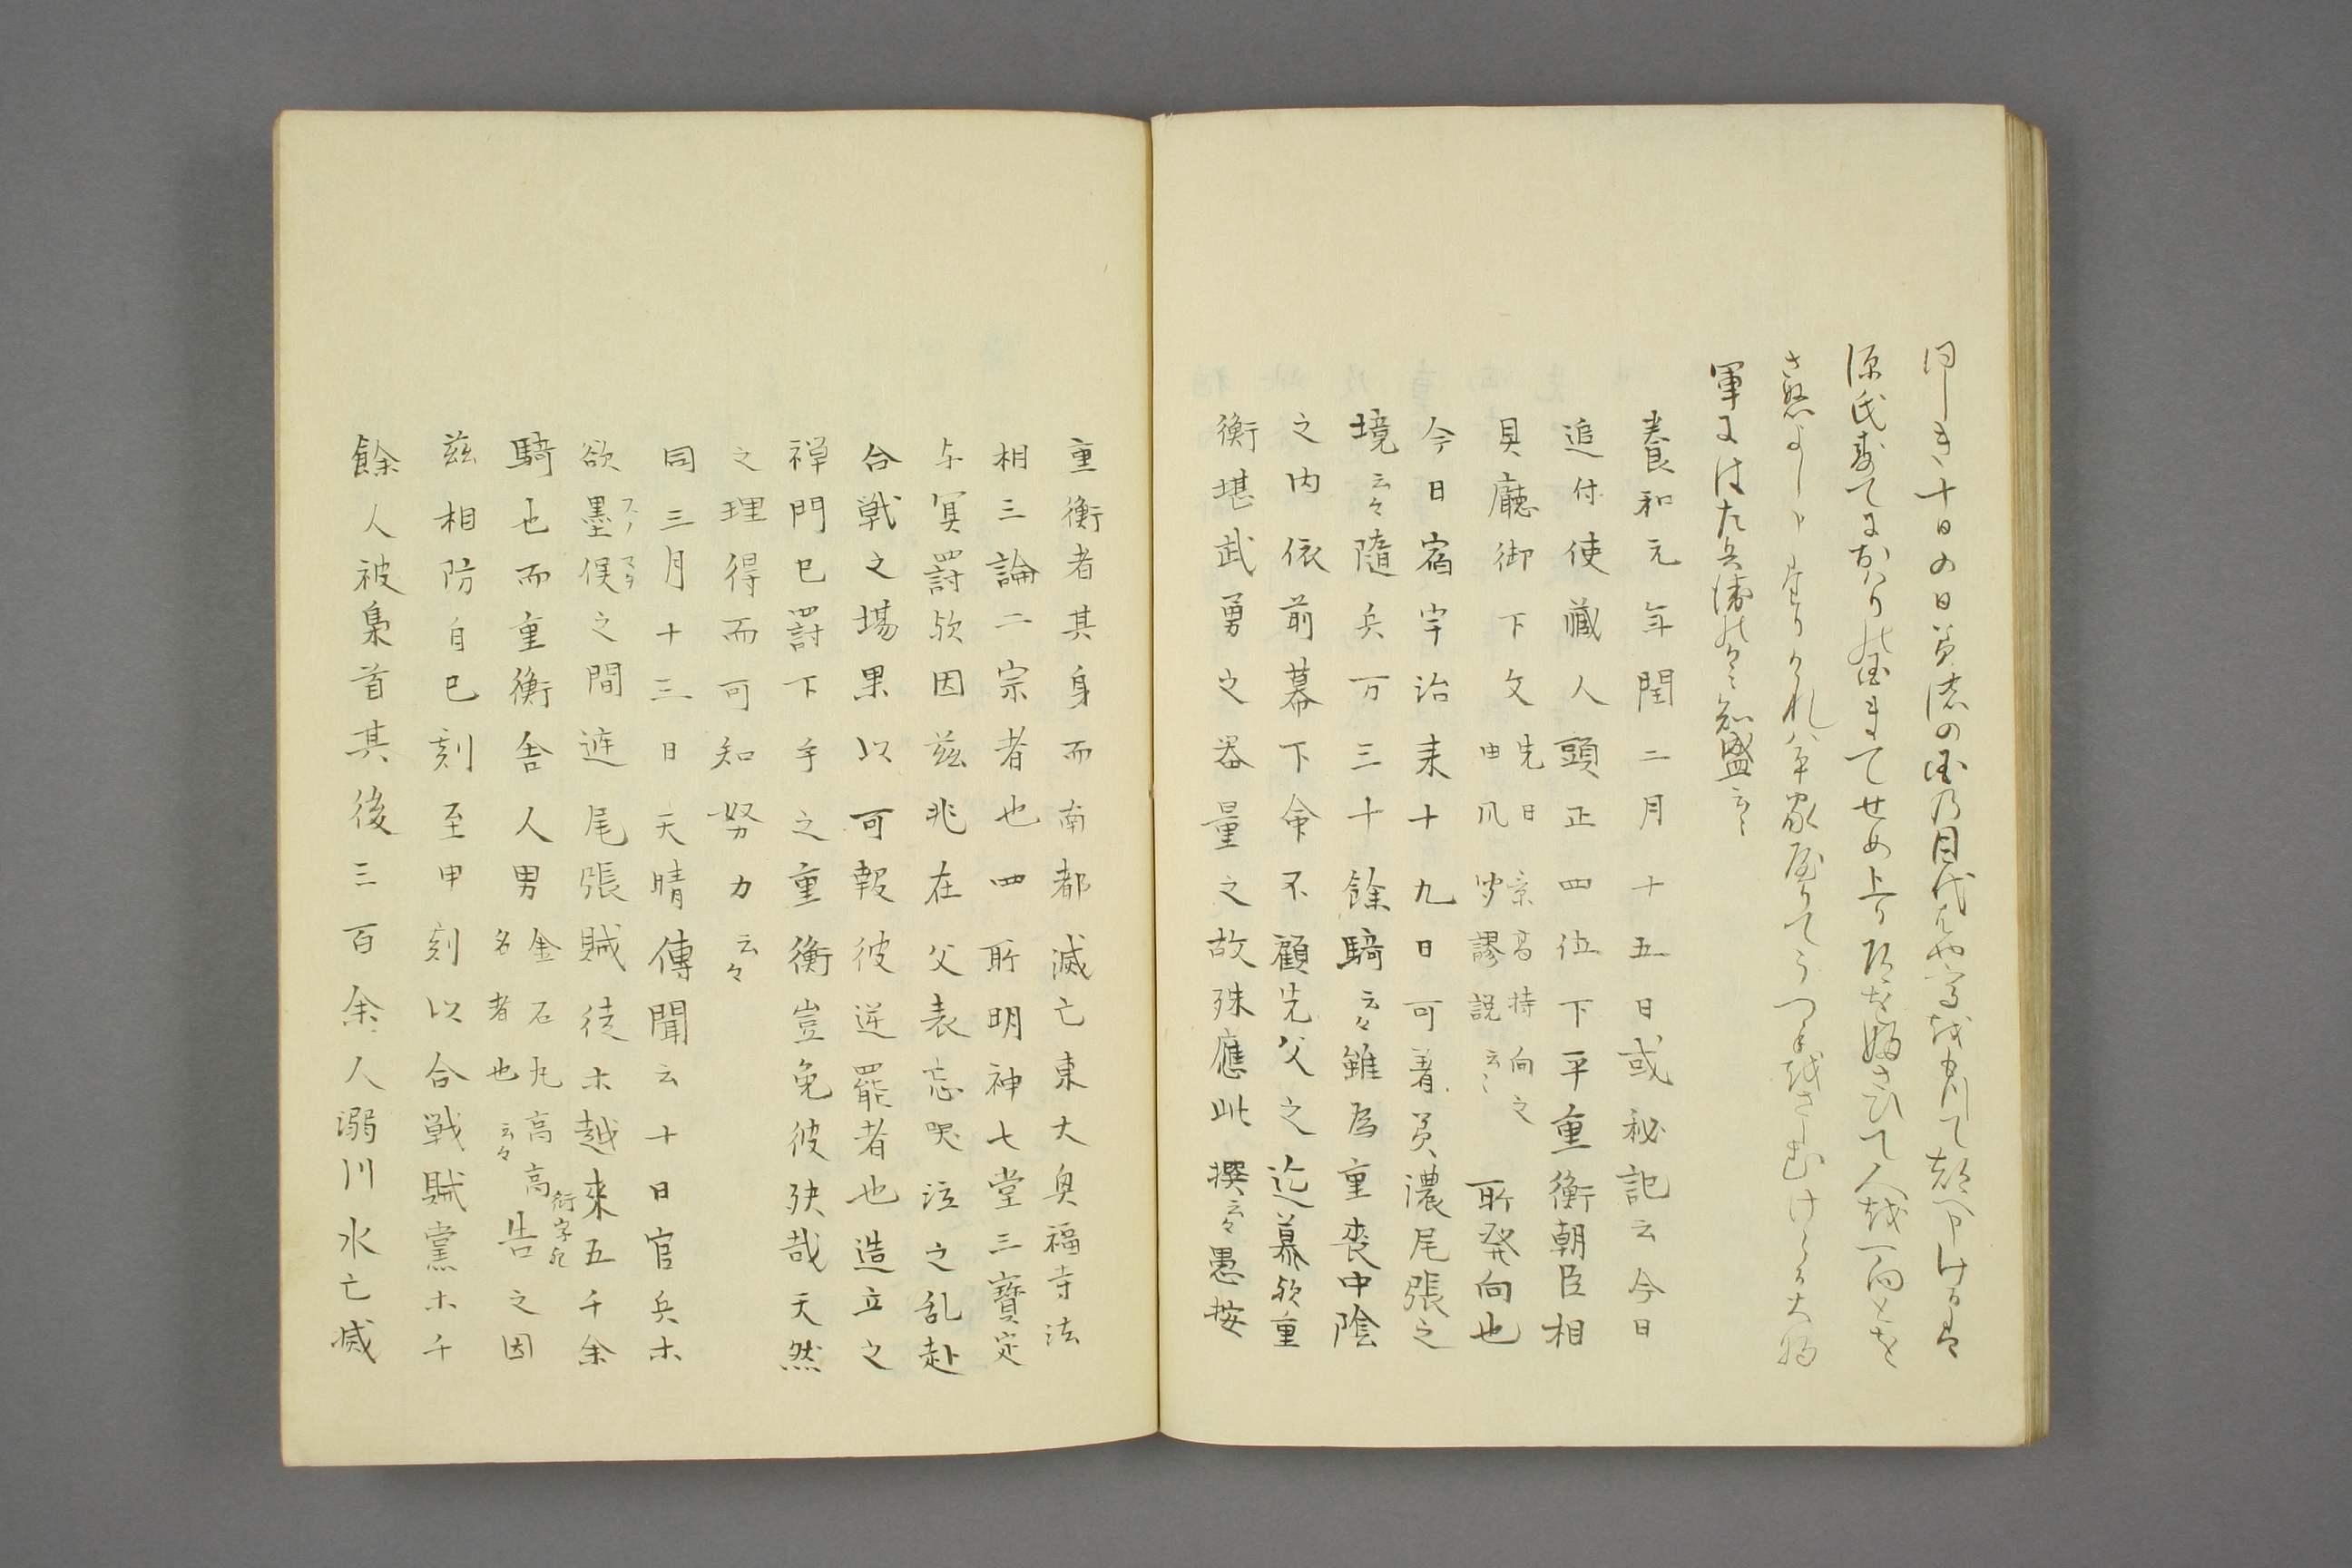 同しき十日の日美濃の国の目代早馬を以て都へ申けるは
源氏すてにおはりの国まてせめ上り道をふさいて人を一向とを
さぬよし申たりけれは平家やかてうつ手をさしむけらる大将
軍には左兵衛督知盛云々
養和元年閏二月十五日或秘記云今日
追付使蔵人頭正四位下平重衡朝臣相
具廳御下文先日京高持向之由风聞謬説云々所発向也
今日宿宇治来十九日可着美濃尾張之
境云々隨兵万三十餘騎云々雖為重喪中陰
之内依前幕下命不顧先父之追慕欤重
衡堪武勇之器量之故殊應此撰云々愚按
重衡者其身而南都滅亡東大興福寺法
相三論二宗者也四所明神七堂三寳定
与冥罸欤因茲兆在父表忘哭泣之乱赴
合戦之場果以可報彼逆罷者也造立之
禅門已罸下手之重衡豈免彼殃哉天然
之理得而可知努力云々
同三月十三日天晴傳聞云十日官兵木
欲墨俣スノマタ之間進尾張賊徒木越来五千余
騎也而重衡舎人男金石丸高名者也云々高衍字乎告之因
茲相防自巳刻至申刻以合戦賊黨木千
餘人被梟首其後三百余人溺川水亡滅